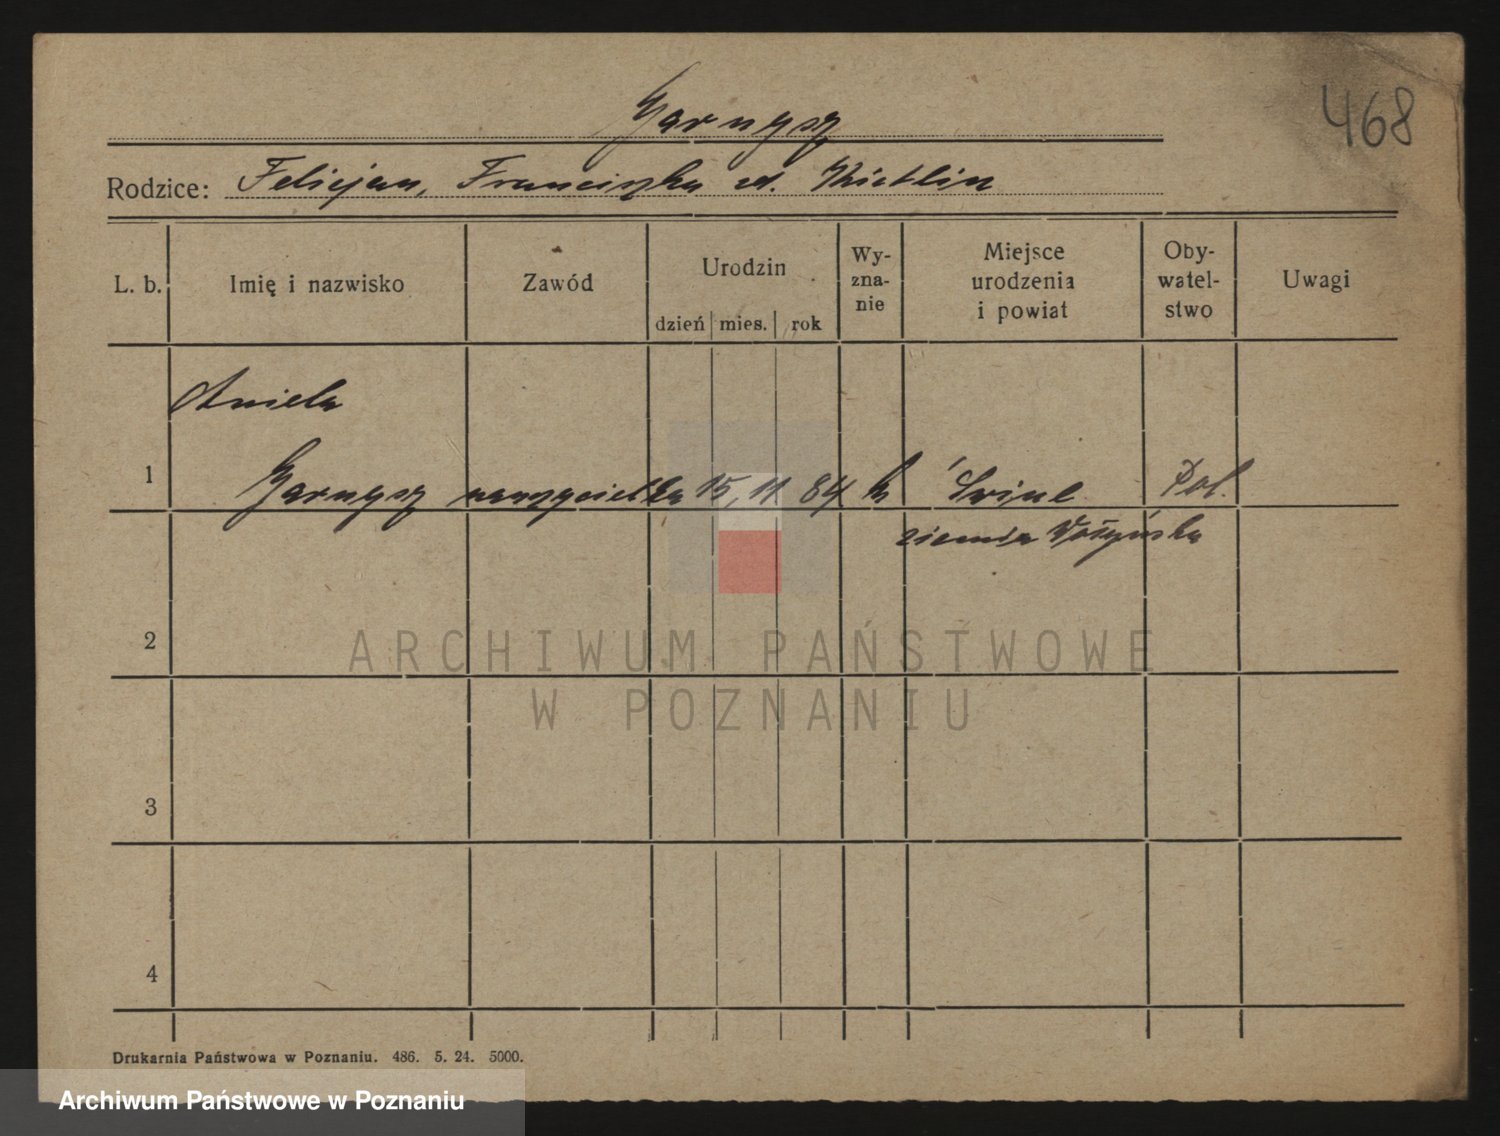 468
Garnysz
Rodzice: Felicjan, Franciszka zd. Kietlin
L. b. Imię i nazwisko Zawód Urodzin dzień mies. rok Wy-zna-nie Miejsce urodzenia i powiat Oby-watel-stwo Uwagi
Aniela
1 Garnysz nauczycielka 15, 11 84 k Pol.
ziemia Wołyńska
2
ARCHIWUM PAŃSTWOWE
W POZNANIU
3
4
Drukarnia Państwowa w Poznaniu. 486. 5. 24. 5000.
Archiwum Państwowe w Poznaniu